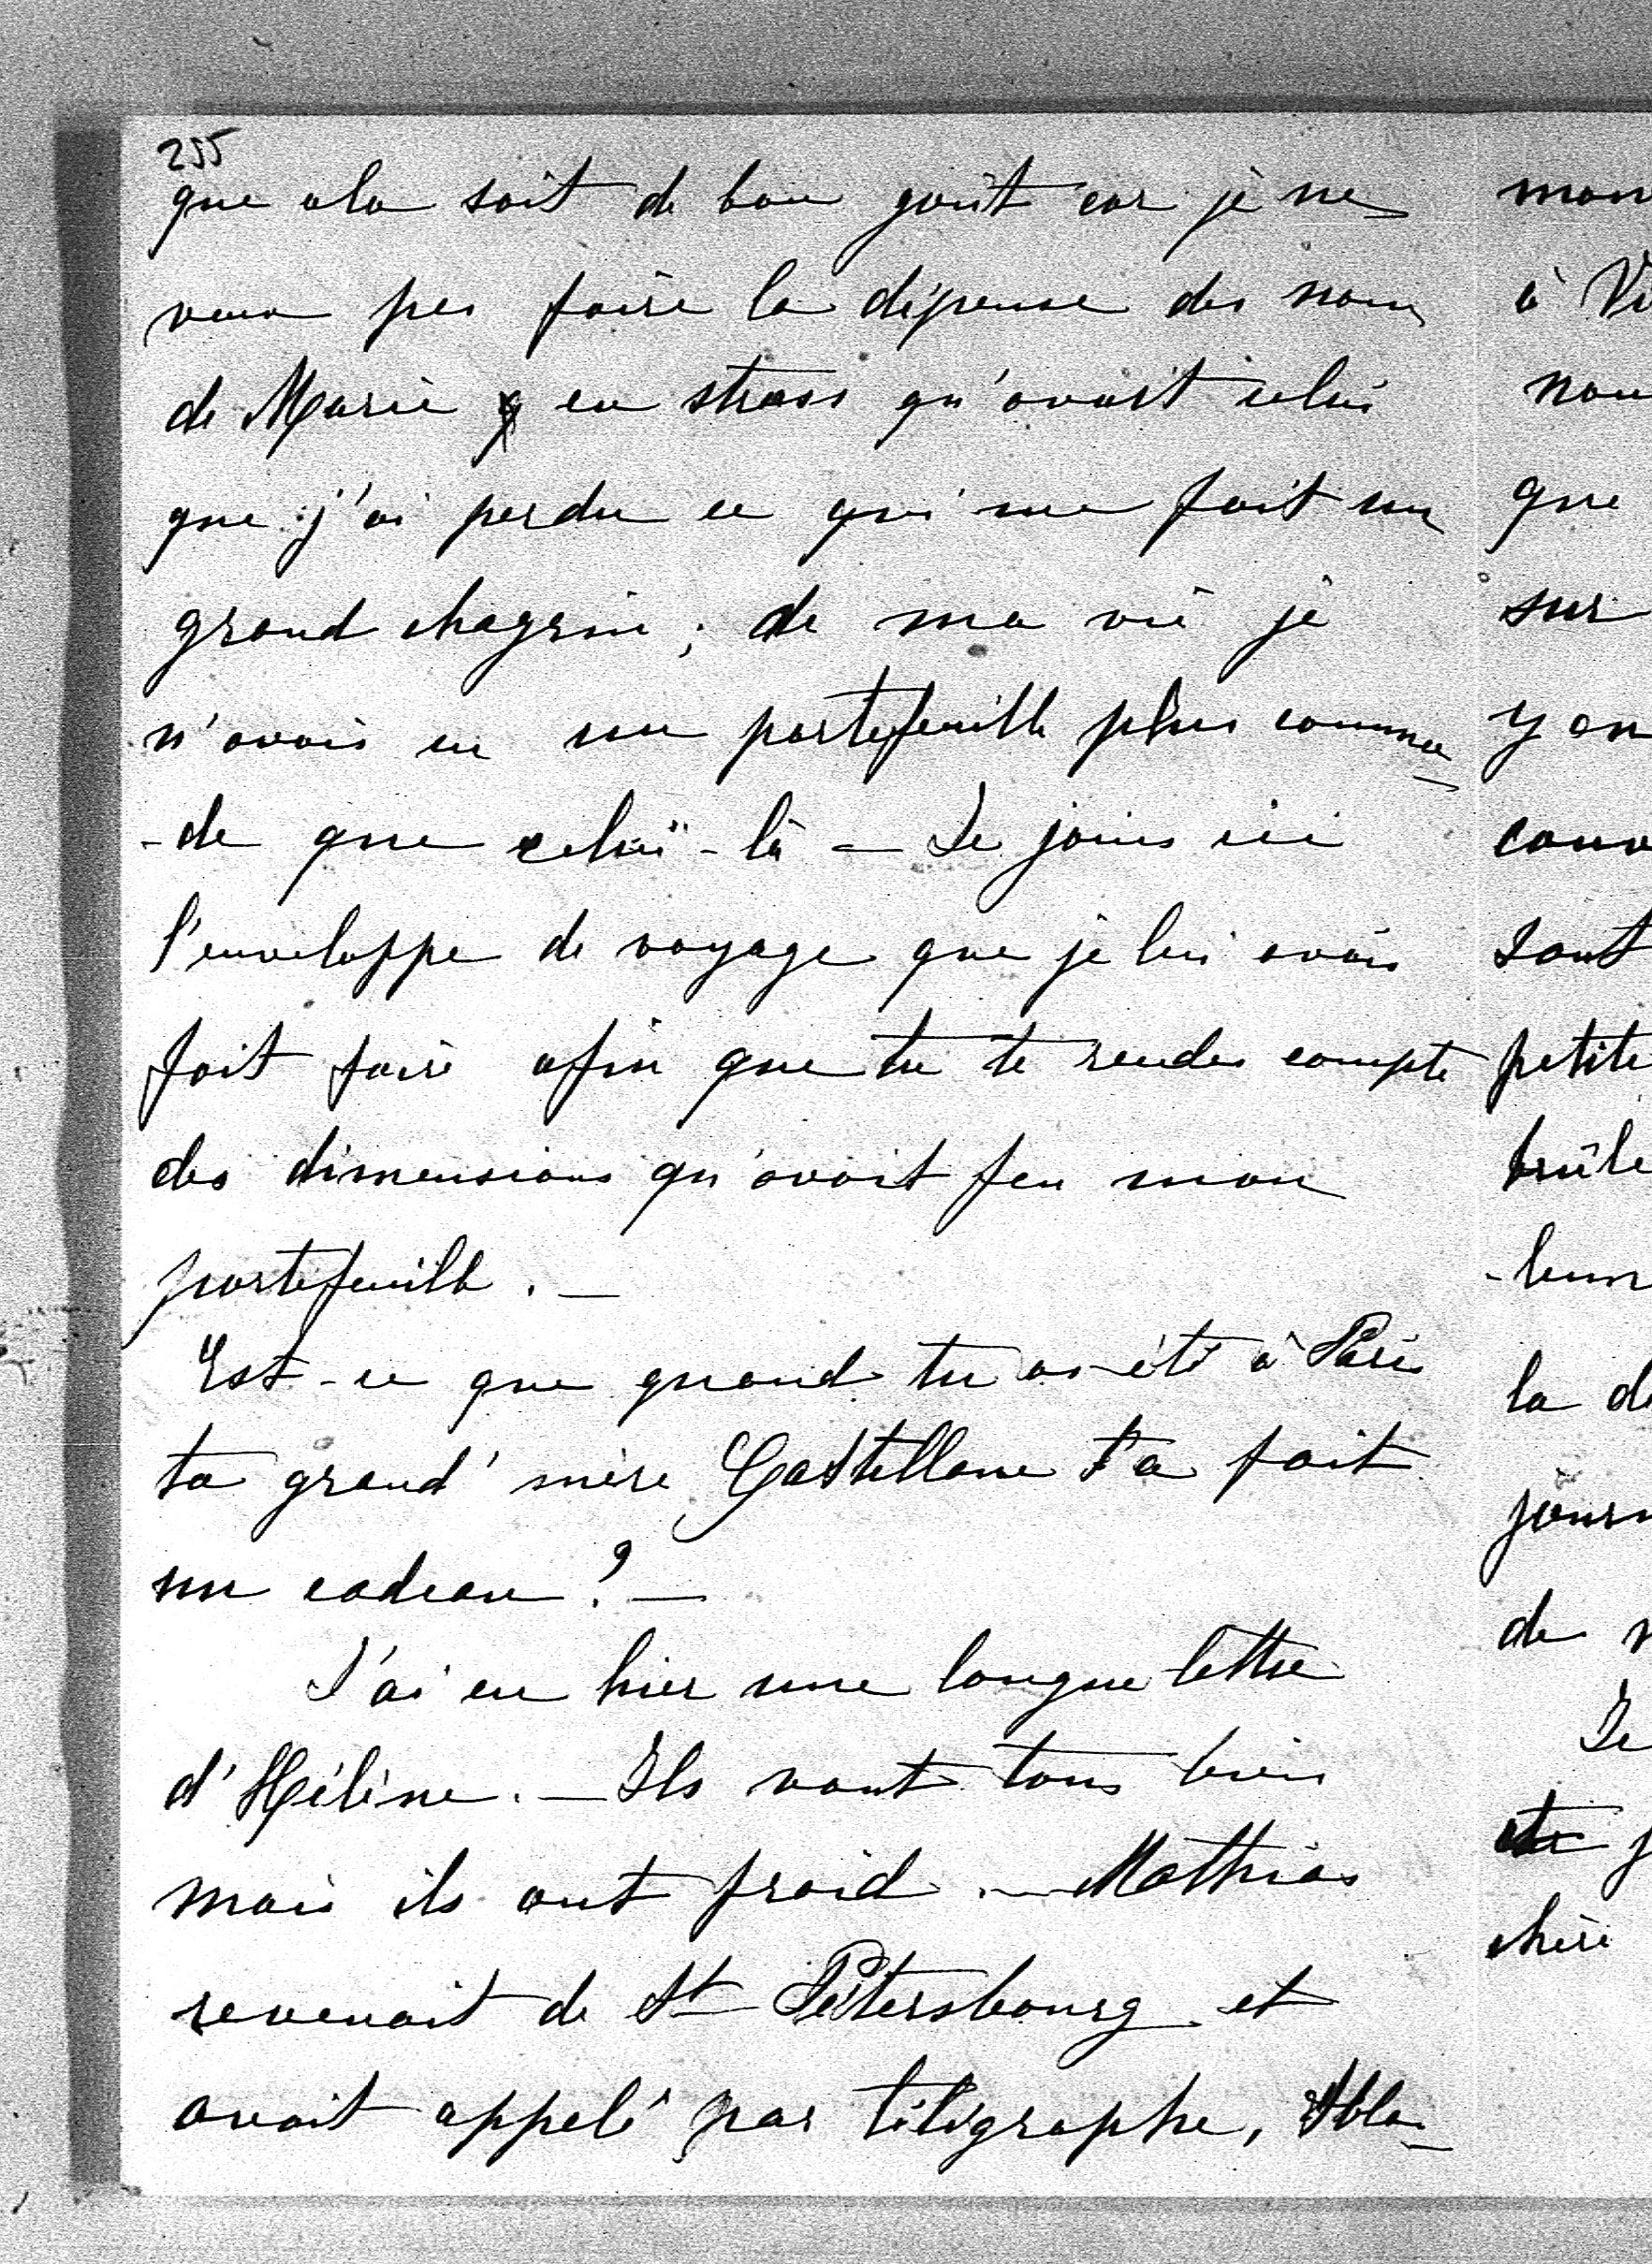 255
que cela soit de bon goût car je ne
veux pas faire la dépense des noms
de Marie en strass qu'avait celui
que j'ai perdu ce qui me fait un
grand chagrin ; de ma vie je
n'avais eu un portefeuille plus commo
-de que celui-là — Je joins ici
l'enveloppe de voyage que je lui avais
fait faire afin que tu te rendes compte
des dimensions qu'avait feu mon
portefeuille . —
Est-ce que quand tu as été à Paris
ta grand'mère Castellane t'a fait
un cadeau ? —
J'ai eu hier une longue lettre
d'Hélène . — Ils vont tous bien
mais ils ont froid . — Mathias
revenait de St Pétersbourg et
avait appelé par télégraphe,
mon
à Vi
nou
que
sur
y on
couv
sont
petite
brûle
la d
journ
de
Je
chère